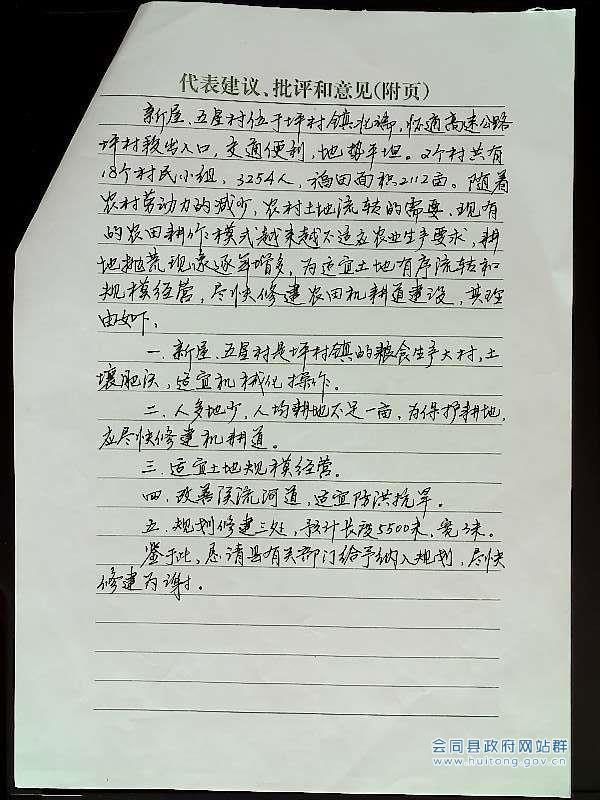 代表建议、批评和意见(附页)
新屋、五星村位于坪村镇北端，怀通高速公路
坪村段出入口，交通便利，地势平坦。2个村共有
18个村民小组，3254人，稻田面积2112亩。随着
农村劳动力的减少，农村土地流转的需要，现有
的农田耕作模式越来越不适应农业生产要求，耕
地抛荒现象逐年增多，为适宜土地有序流转和
规模经营，尽快修建农田机耕道建设，其理
由如下：
一、新屋、五星村是坪村镇的粮食生产大村，土
壤肥沃，适宜机械化操作。
二、人多地少，人均耕地不足一亩，为保护耕地，
应尽快修建机耕道。
三、适宜土地规模经营。
四、改善溪流河道，适宜防洪抗旱。
五、规划修建三处，预计长度5500米，宽3米。
鉴于此，恳请县有关部门给予纳入规划，尽快
修建为谢！
会同县政府网站群
www.huitong.gov.cn